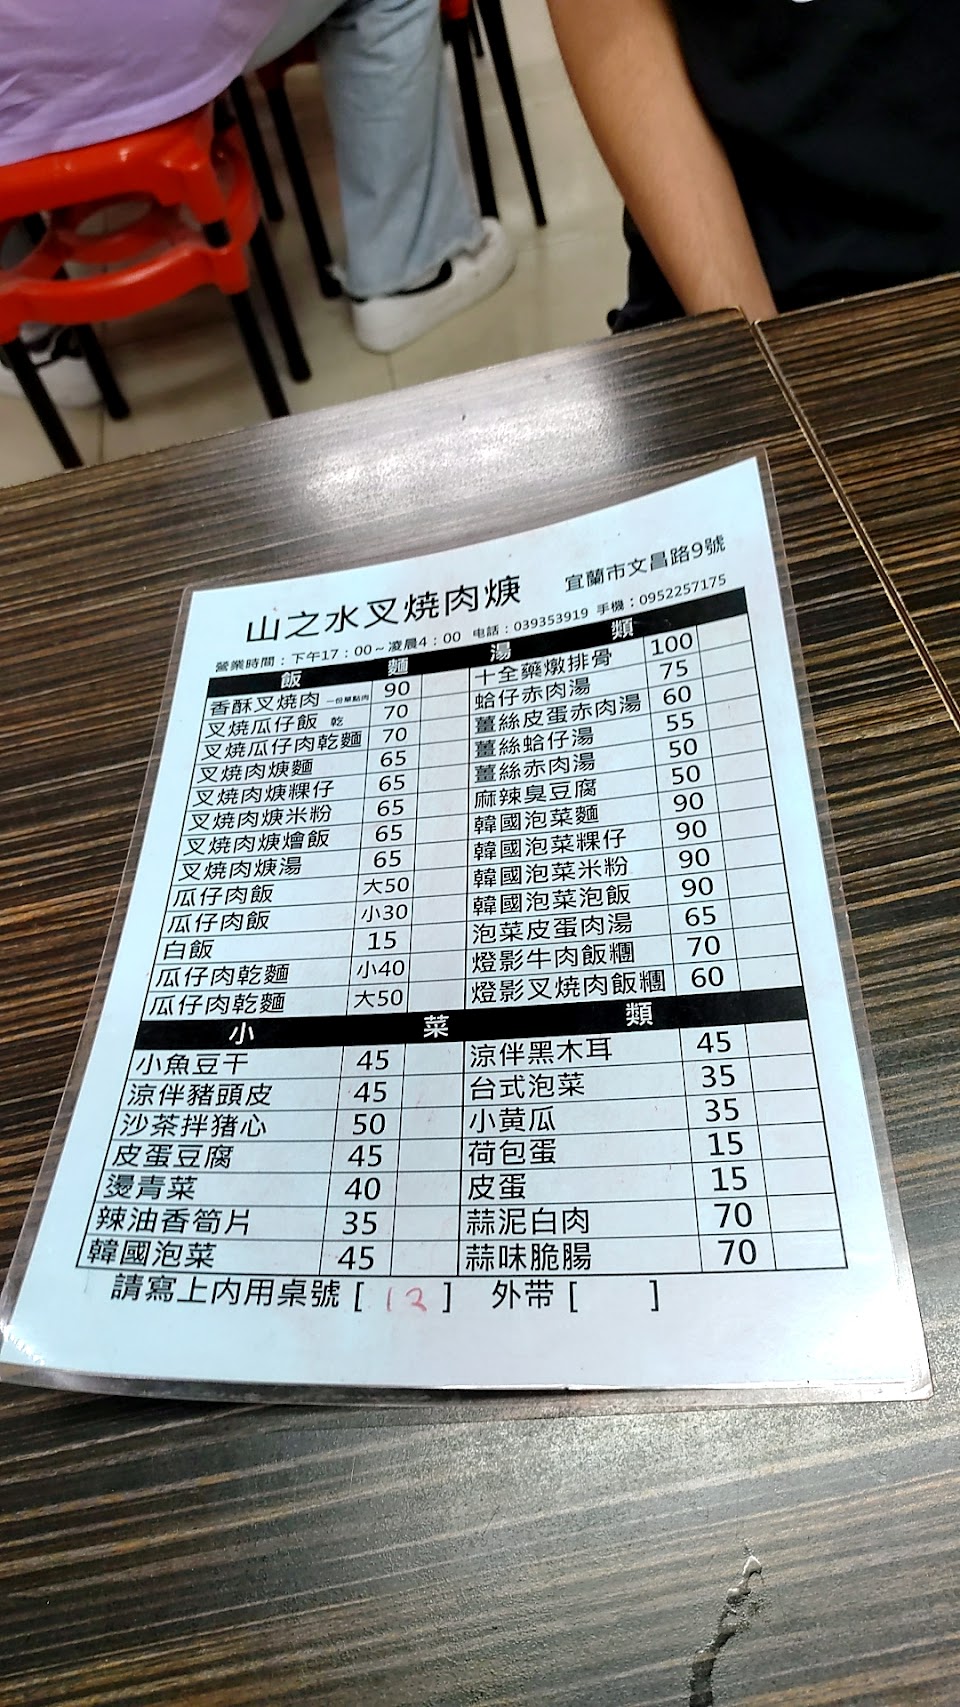 山之水叉燒肉焿 宜蘭市文昌路9號
營業時間：下午17：00～凌晨4：00 电話：039353919 手機：0952257175
飯 麵 湯 類
香酥叉燒肉 一份單點肉 90 十全藥燉排骨 100
叉燒瓜仔飯 乾 70 蛤仔赤肉湯 75
叉燒瓜仔肉乾麵 70 薑絲皮蛋赤肉湯 60
叉燒肉焿麵 65 薑絲蛤仔湯 55
叉燒肉焿粿仔 65 薑絲赤肉湯 50
叉燒肉焿米粉 65 麻辣臭豆腐 50
叉燒肉焿燴飯 65 韓國泡菜麵 90
叉燒肉焿湯 65 韓國泡菜粿仔 90
瓜仔肉飯 大50 韓國泡菜米粉 90
瓜仔肉飯 小30 韓國泡菜泡飯 90
白飯 15 泡菜皮蛋肉湯 65
瓜仔肉乾麵 小40 燈影牛肉飯糰 70
瓜仔肉乾麵 大50 燈影叉燒肉飯糰 60
小 菜 類
小魚豆干 45 涼伴黑木耳 45
涼伴豬頭皮 45 台式泡菜 35
沙茶拌猪心 50 小黄瓜 35
皮蛋豆腐 45 荷包蛋 15
燙青菜 40 皮蛋 15
辣油香筍片 35 蒜泥白肉 70
韓國泡菜 45 蒜味脆腸 70
請寫上內用桌號［ 12 ］ 外带［ ］